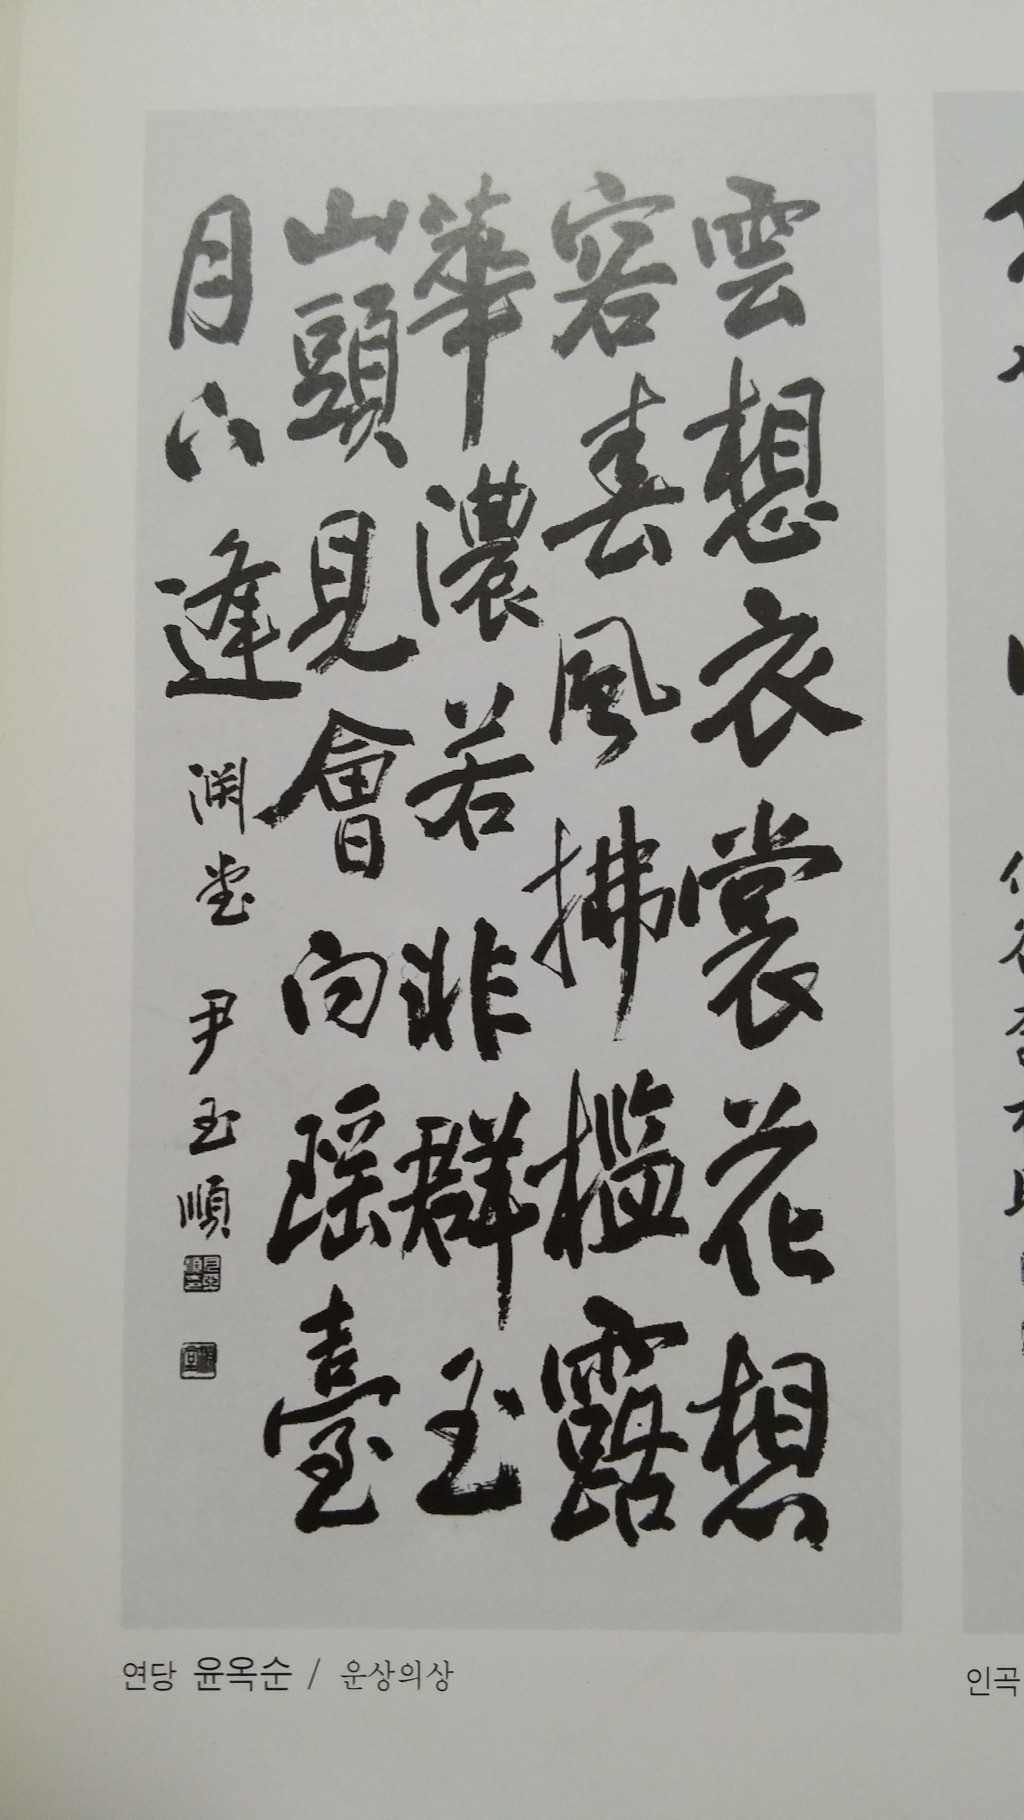 雲想衣裳花想
容春風拂檻露
華濃若非群玉
山頭見會向瑤臺
月下逢 淵堂 尹玉順
연당 윤옥순 / 운상의상
인곡